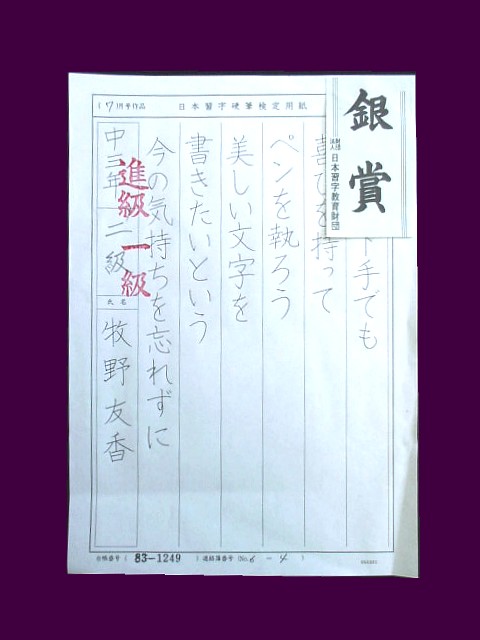 (7)月号作品
日本習字硬筆検定用紙
銀賞
財団法人 日本習字教育財団
下手でも
喜びを持って
ペンを執ろう
美しい文字を
書きたいという
今の気持ちを忘れずに
進級一級
中三年 二級
氏名
牧野友香
台帳番号( 83-1249 ) 連絡簿番号(No. 6 - 4 )